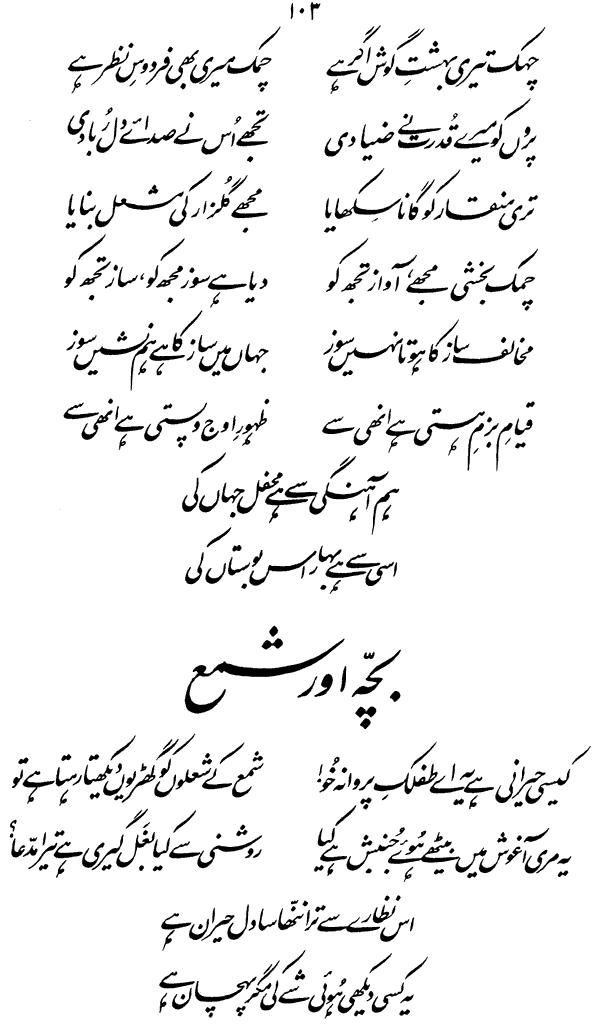 ۱۰۳
چہک تیری بہشتِ گوش اگر ہے چمک میری بھی فردوسِ نظر ہے
پروں کو میرے قُدرت نے ضیا دی تجھے اُس نے صدائے دل رُبا دی
تری منقار کو گانا سِکھایا مجھے گلزار کی مشعل بنایا
چمک بخشی مجھے، آواز تجھ کو دیا ہے سوز مجھ کو، ساز تجھ کو
مخالف ساز کا ہوتا نہیں سوز جہاں میں ساز کا ہے ہم نشیں سوز
قیامِ بزمِ ہستی ہے انھی سے ظہورِ اوج و پستی ہے انھی سے
ہم آہنگی سے ہے محفل جہاں کی
اسی سے ہے بہار اس بوستاں کی
بچّہ اور شمع
کیسی حیرانی ہے یہ اے طفلکِ پروانہ خُو! شمع کے شعلوں کو گھڑیوں دیکھتا رہتا ہے تو
یہ مری آغوش میں بیٹھے ہُوئے جُنبش ہے کیا روشنی سے کیا بغَل گیری ہے تیرا مدّعا؟
اس نظارے سے ترا ننّھا سا دل حیران ہے
یہ کسی دیکھی ہُوئی شے کی مگر پہچان ہے